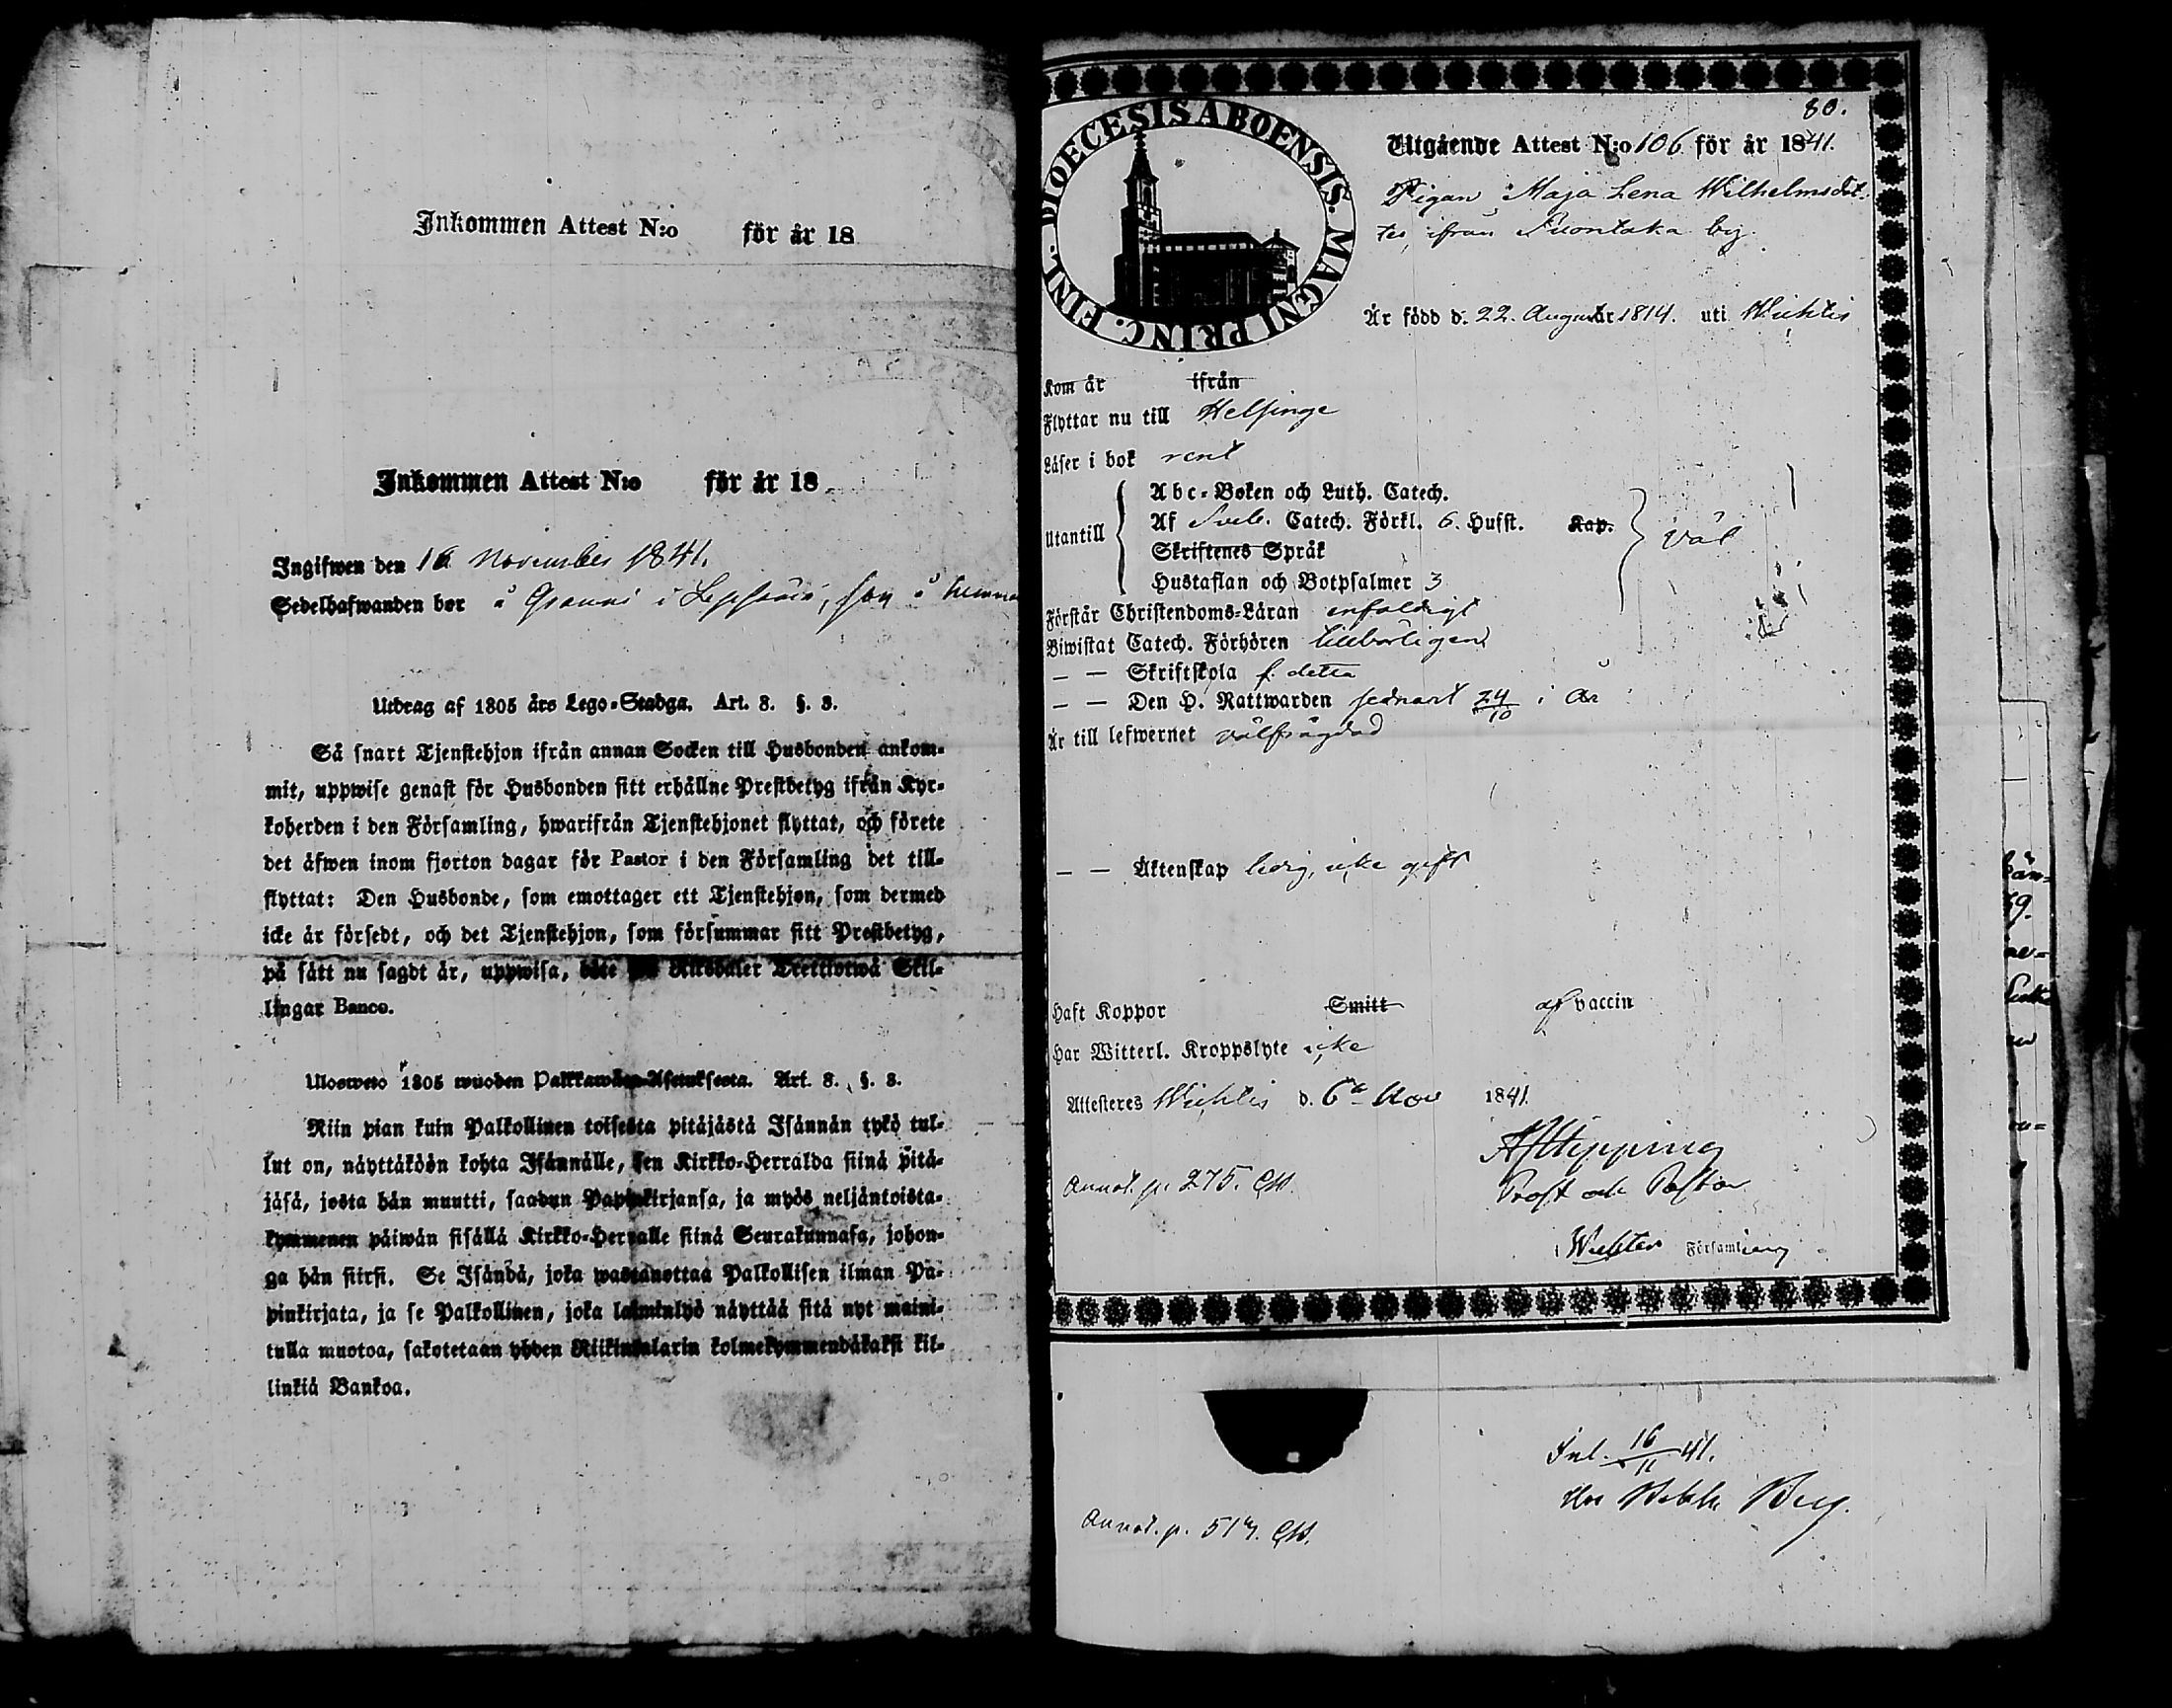 Inkommen Attest N:o för år 18
Inkommen Attest N:o för år 18
Ingifwen den 16 November 1841.
Sedelhafwanden bor å i
Utdrag af 1805 års Lego-Stadga. Art. 8. §. 8.
Så snart Tjenstehjon ifrån annan Socken till Husbonden ankom-
mit, uppwise genast för Husbonden sitt erhållne Prestbetyg ifrån Kyr-
koherden i den Församling, hwarifrån Tjenstehjonet flyttat, och förete
det äfwen inom fjorton dagar för Pastor i den Församling det till-
flyttat: Den Husbonde, som emottager ett Tjenstehjon, som dermed
icke är försedt, och det Tjenstehjon, som försummar sitt Prestbetyg,
på sätt nu sagdt är, uppwisa, böte Riksdaler Trettiotwå Skil-
lingar Banco.
Ulosweto 1805 wuoden Palkkawäen-Asetuksesta. Art. 8. §. 8.
Niin pian kuin Palkollinen toisesta pitäjästä Isännän tykö tul-
lut on, näyttäköön kohta Isännälle, sen Kirkko-Herralda siinä pitä-
jäsä, josta hän muutti, saadun Papinkirjansa, ja myös neljäntoista-
kymmenen päiwän sisällä Kirkko-Herralle siinä Seurakunnasa, johon-
ga hän siirsi. Se Isändä, joka wastanottaa Palkollisen ilman Pa-
pinkirjata, ja se Palkollinen, joka laiminlyö näyttää sitä nyt maini-
tulla muotoa, sakotetaan yhden Riikintalarin kolmekymmendäkaksi kil-
linkiä Bankoa.
80.
DIOECESIS ABOENSIS. MAGNI PRINC. FINL.
Utgående Attest N:o 106 för år 1841.
Pigan Maja Lena Wilhelmsdot-
ter, ifrån Suontaka by.
Är född d. 22. August år 1814. uti Wichtis
Kom år ifrån
Flyttar nu till Helsinge
Läser i bok rent
Utantill
Abc-Boken och Luth. Catech.
Af Sveb. Catech. Förkl. 6. Hufst. Kap. väl
Skriftenes Språk
Hustaflan och Botpsalmer 3
Förstår Christendoms-Läran enfaldigt
Biwistat Catech. Förhören tillbörligen
— — Skriftskola f. detta
— — Den H. Nattwarden sednast 24/10 i År
Är till lefwernet välfrägdad
— — Äktenskap ledig, icke gift
Haft Koppor Smitt af vaccin
Har Witterl. Kroppslyte icke
Attesteres Wichtis d. 6te Nov 1841.
Annot. p. 275.
Prost och Pastor
i Wichtis Församling
Inl. 16/11 41.
Annot. p. 517.